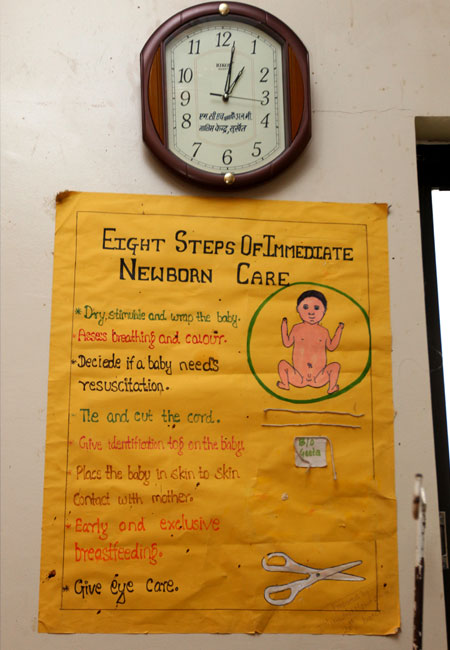 12
1
2
3
4
5
6
7
8
9
10
11
EIGHT STEPS OF IMMEDIATE
NEWBORN CARE
* Dry, stimulate and wrap the baby.
* Assess breathing and colour.
* Deciede if a baby needs
resuscitation.
- Tie and cut the cord.
* Give identification tag on the baby.
* Place the baby in skin to skin
contact with mother.
* Early and exclusive
breastfeeding.
* Give eye care.
B/O
Geeta